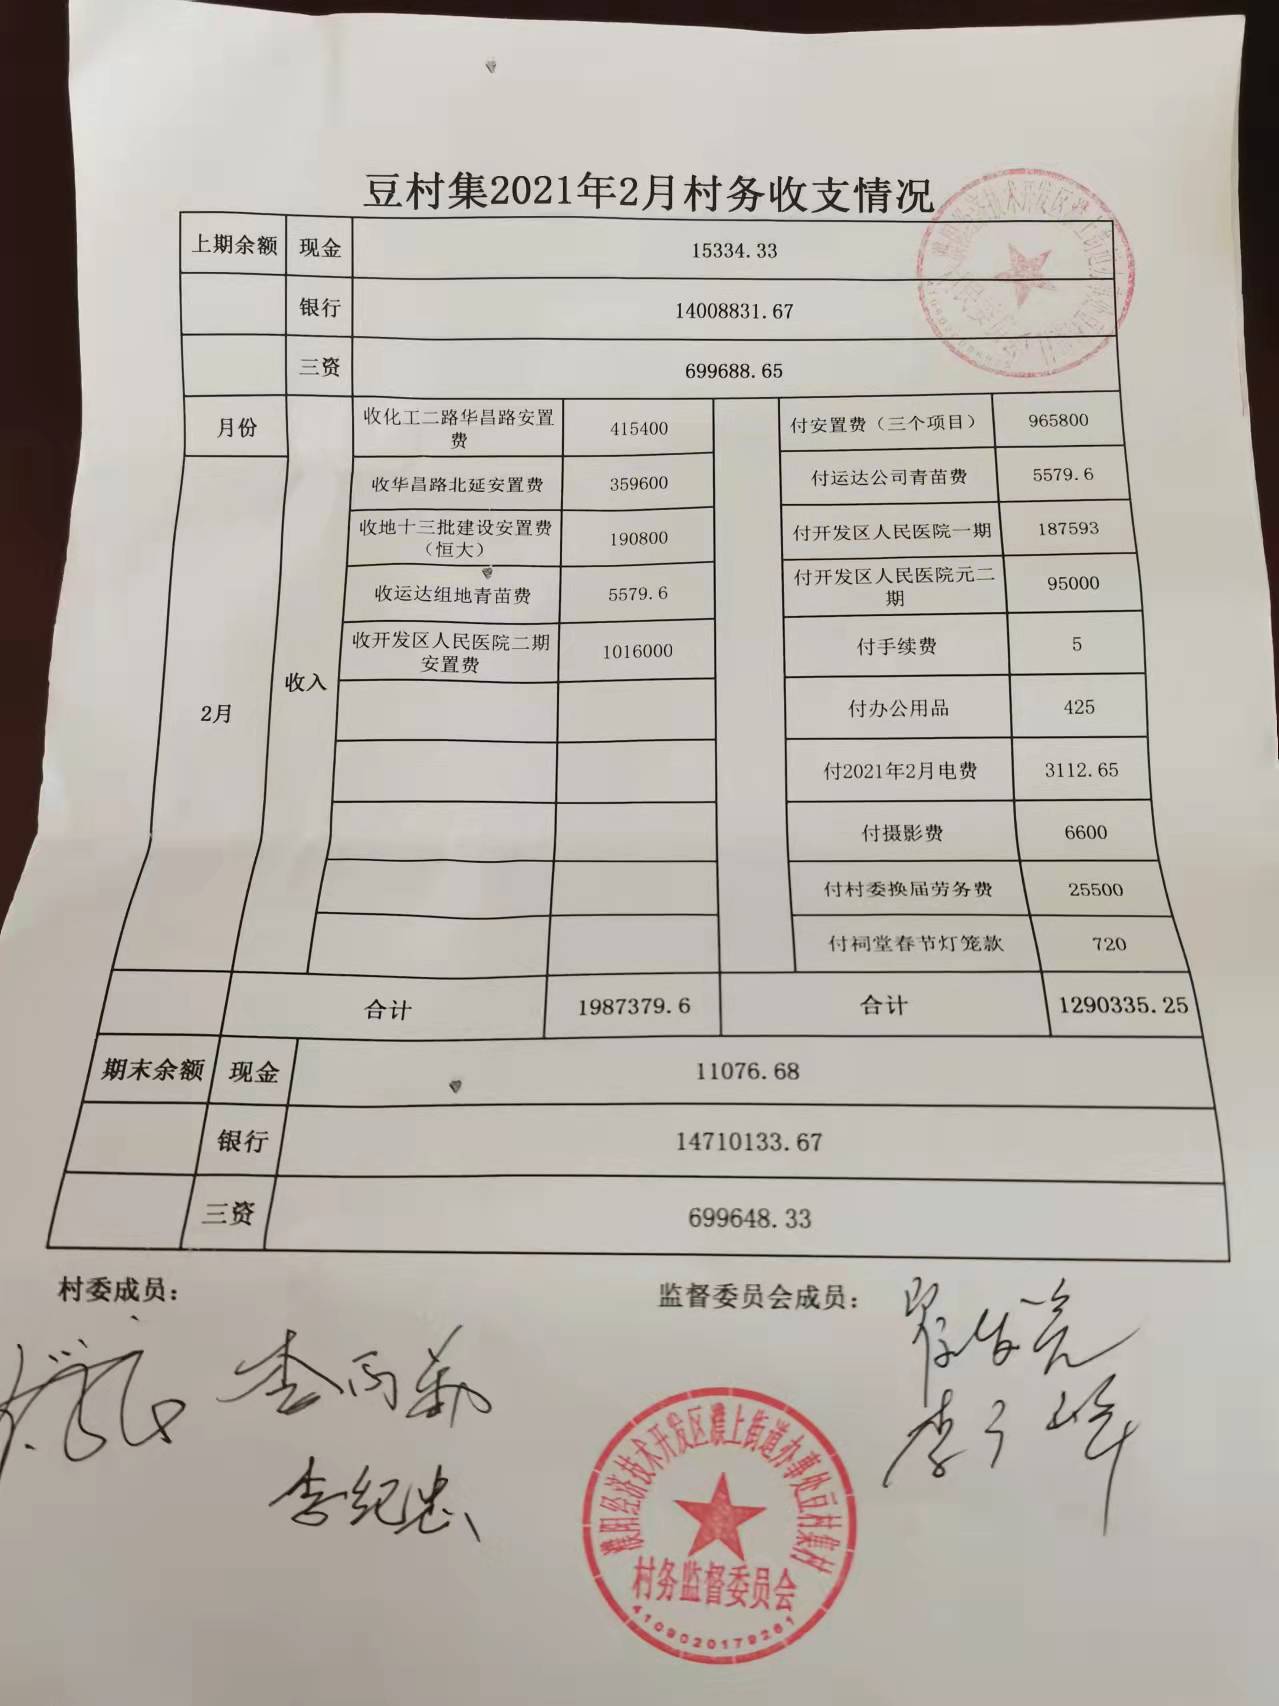 豆村集2021年2月村务收支情况
上期余额 现金 15334.33
银行 14008831.67
三资 699688.65
月份 收化工二路华昌路安置费 415400 付安置费（三个项目） 965800
收华昌路北延安置费 359600 付运达公司青苗费 5579.6
收地十三批建设安置费（恒大） 190800 付开发区人民医院一期 187593
收运达组地青苗费 5579.6 付开发区人民医院元二期 95000
收开发区人民医院二期安置费 1016000 付手续费 5
2月 收入 付办公用品 425
付2021年2月电费 3112.65
付摄影费 6600
付村委换届劳务费 25500
付祠堂春节灯笼款 720
合计 1987379.6 合计 1290335.25
期末余额 现金 11076.68
银行 14710133.67
三资 699648.33
村委成员： 监督委员会成员：
李纪忠
濮阳经济技术开发区濮上街道办事处豆村集村
村务监督委员会
4109020179261